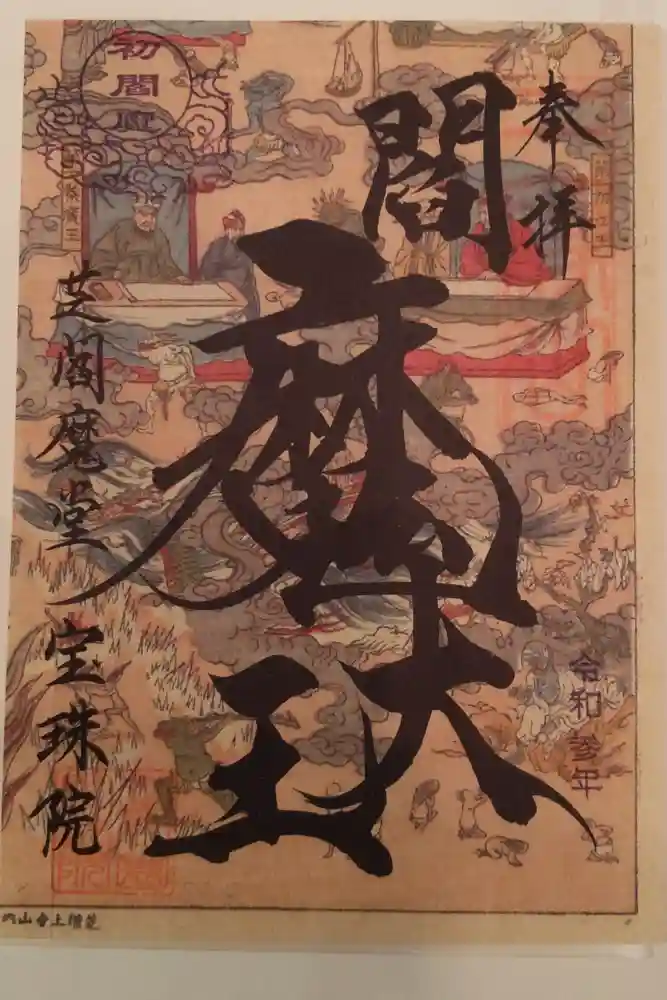 奉拝
令和参年
閻魔大王
初閻魔
芝閻魔堂
宝珠院
秦廣王
芝增上寺山内